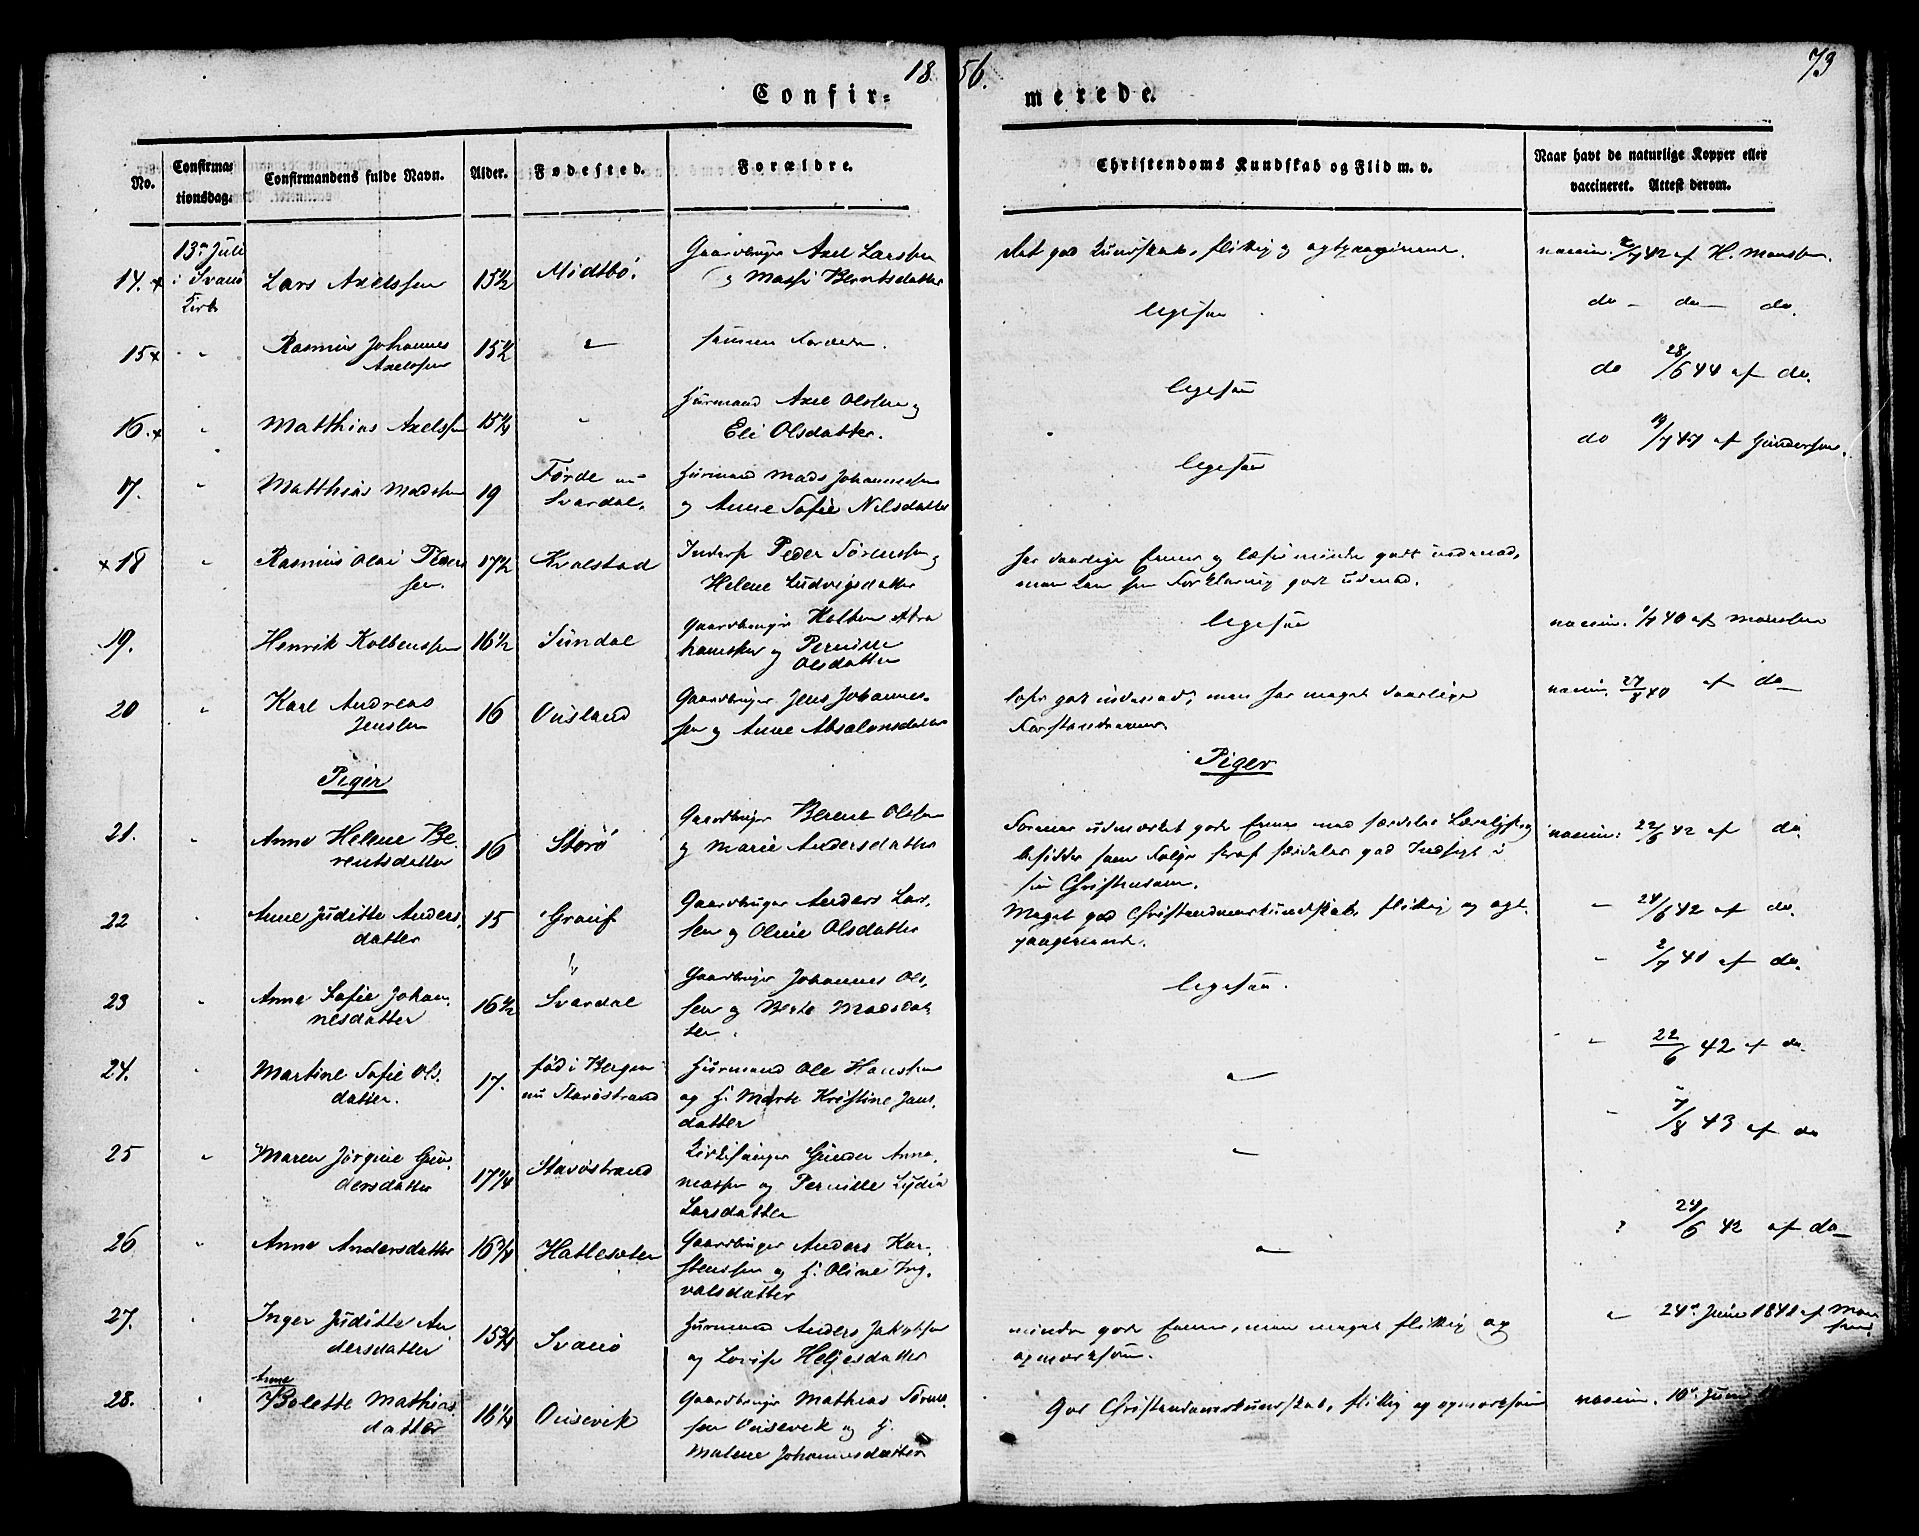 1856.
73
Confirmerede.
No.
Confirmationsdag.
Confirmandens fulde Navn.
Alder.
Fødested.
Forældre.
Christendoms Kundskab og Flid m. v.
Naar havt de naturlige Kopper eller vaccineret. Attest derom.
14. x 13de Juli i Svanø Kirke Lars Axelssen 15½ Midtbø. Gaardbruger Axel Larssen
og Berntsdatter
god Kundskab, flittig og
vaccin. 42 af H. Monssen.
15 x " Rasmus Johannes
Axelssen 15½ " samme Forældre.
ligesaa
do - do - do.
16. x " Matthias Axelssen 15¼ " Huusmand Axel Olssen og
Eli Olsdatter.
ligesaa
do 28/6 44 af do.
17. " Matthias Madssen 19 Førde nu
Svardal. Huusmand Mads Johannessen
og Anne Sofie Nilsdatter
ligesaa
do 19/7 47 af Gundersen.
x 18 " Rasmus Olai Peders
sen. 17½ Kvalstad Inderst Peder Sørenssen og
Helene Ludvigsdatter
har daarlige Evner og læser mindre godt indenad,
men kan sin Forklaring godt udenad.
19. " Henrik Kolbenssen 16½ Sundal Gaardbruger Kolben Abra
hamssen og Pernille
Olsdatter
ligesaa
vaccin. 40 af Monssen
20 " Karl Andreas
Jenssen 16 Ousland Gaardbruger Jens Johannes
sen og Anne Absalonsdatter
læser godt indenad, men har meget daarlige
Forstandsevner
vaccin. 27/8 40 af do
Piger
Piger
21. " Anne Helene Be
rentsdatter 16 Storø Gaardbruger Berent Olssen
og Marie Andersdatter
udmærket gode Evner med særdeles
besidder som Følge heraf særdeles god Indsigt i
sin Christendom.
vaccin: 22/6 42 af do.
22 " Anne Juditte Anders
datter 15 Gaardbruger Anders Lar
sen og Oline Olsdatter
Meget god Christendomskundskab, flittig og
" 24/6 42 af do.
23 " Anne Sofie Johan
nesdatter 16½ Svardal Gaardbruger Johannes Ols
sen og Berte Madsdat
ter.
ligesaa.
" 2/7 41 af do.
24. " Martine Sofie Ols
datter. 17. fød i Bergen
nu Stavøstrand Huusmand Ole Hanssen
og H. Marte Kristine Jans
datter
"
" 22/6 42 af do.
25 " Maren Jørgine Gun
dersdatter 17¼ Stavøstrand Kirkesanger Gunder Anno
massen og Pernille Lydia
Larsdatter
"
" 7/8 43 af do
26 " Anne Andersdatter 16¾ Hatlesæter Gaardbruger Anders Kar
stenssen og H. Oline Ing
valsdatter
"
" 24/6 42 af do
27. " Inger Juditte An
dersdatter 15¾ Svanø Huusmand Anders Jakobsen
og Lovise Heljesdatter
mindre gode Evner, men meget flittig og
opmærksom.
" 24de Juni 1841 af Mons
sen
28. " Anne
Bolette Mathias
datter 16¼ Ousevik Gaardbruger Mathias Sørens
sen Ousevik og H.
Malene Johannesdatter
God Christendomskundskab, flittig og opmærksom
vaccin. 10de Juni